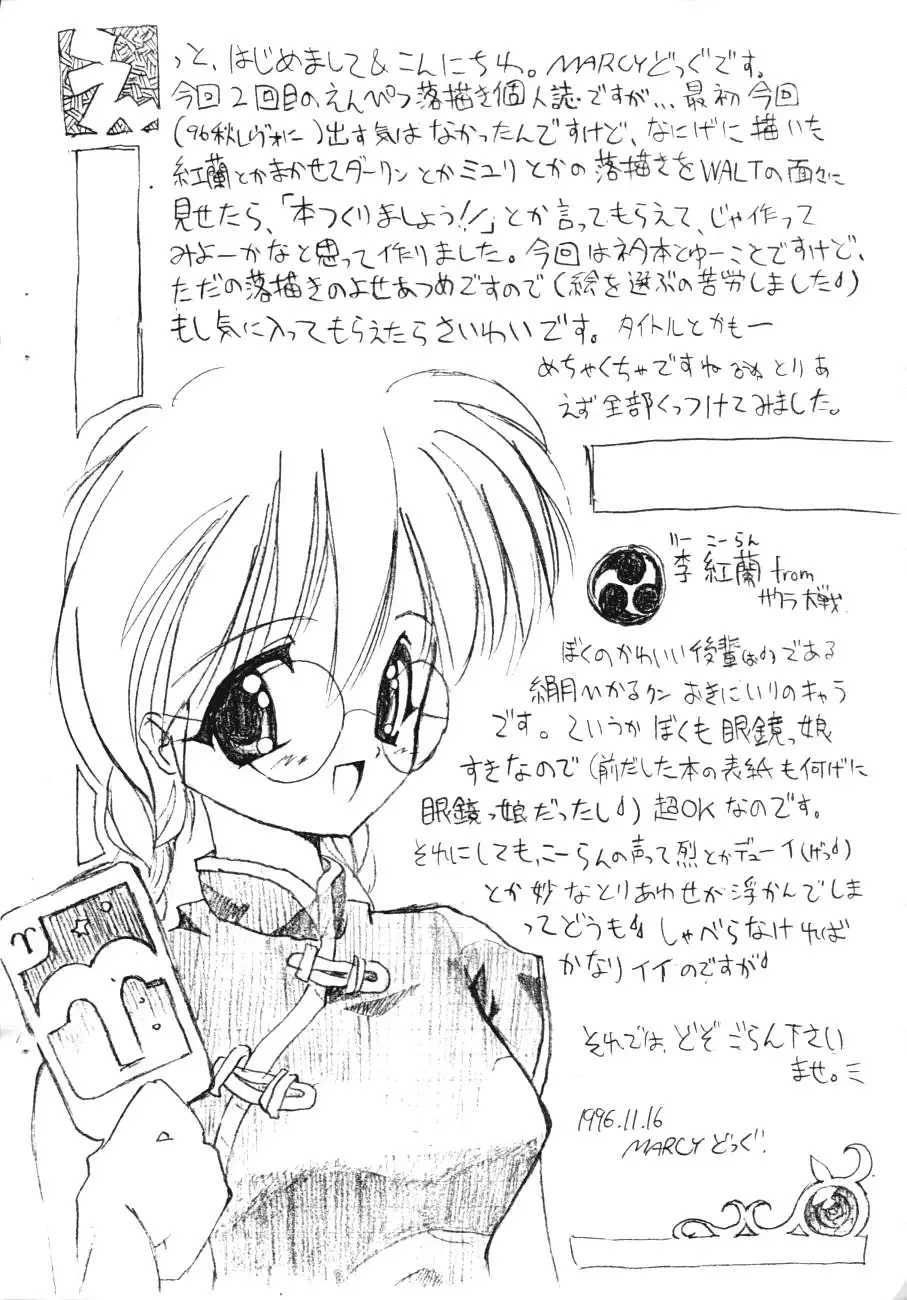 えっと、はじめまして&こんにちわ。MARCYどっぐです。
今回2回目のえんぴつ落描き個人誌ですが…最初今回
(96秋レヴォに)出す気はなかったんですけど、なにげに描いた
紅蘭とかまかせてダーリンとかミユリとかの落描きをWALTの面々に
見せたら、「本つくりましょう!!」とか言ってもらえて、じゃ作って
みよーかなと思って作りました。今回はネタ本とゆーことですけど、
ただの落描きのよせあつめですので(絵を選ぶの苦労しました♪)
もし気に入ってもらえたらさいわいです。タイトルとかもー
めちゃくちゃですね とりあ
えず全部くっつけてみました。
りー こーらん
李 紅蘭 from
サクラ大戦.
ぼくのかわいい後輩(はぁと)である
絹月いかるクン おきにいりのキャラ
です。というか ぼくも眼鏡っ娘
すきなので(前だした本の表紙も何げに
眼鏡っ娘だったし♪)超OKなのです。
それにしても、こーらんの声って烈とかデューイ(げっ♪)
とか妙なとりあわせが浮かんでしま
ってどうも♪♪ しゃべらなければ
かなりイイのですが♪
それでは、どぞ ごらん下さい
ませ。
1996.11.16
MARCYどっぐ.